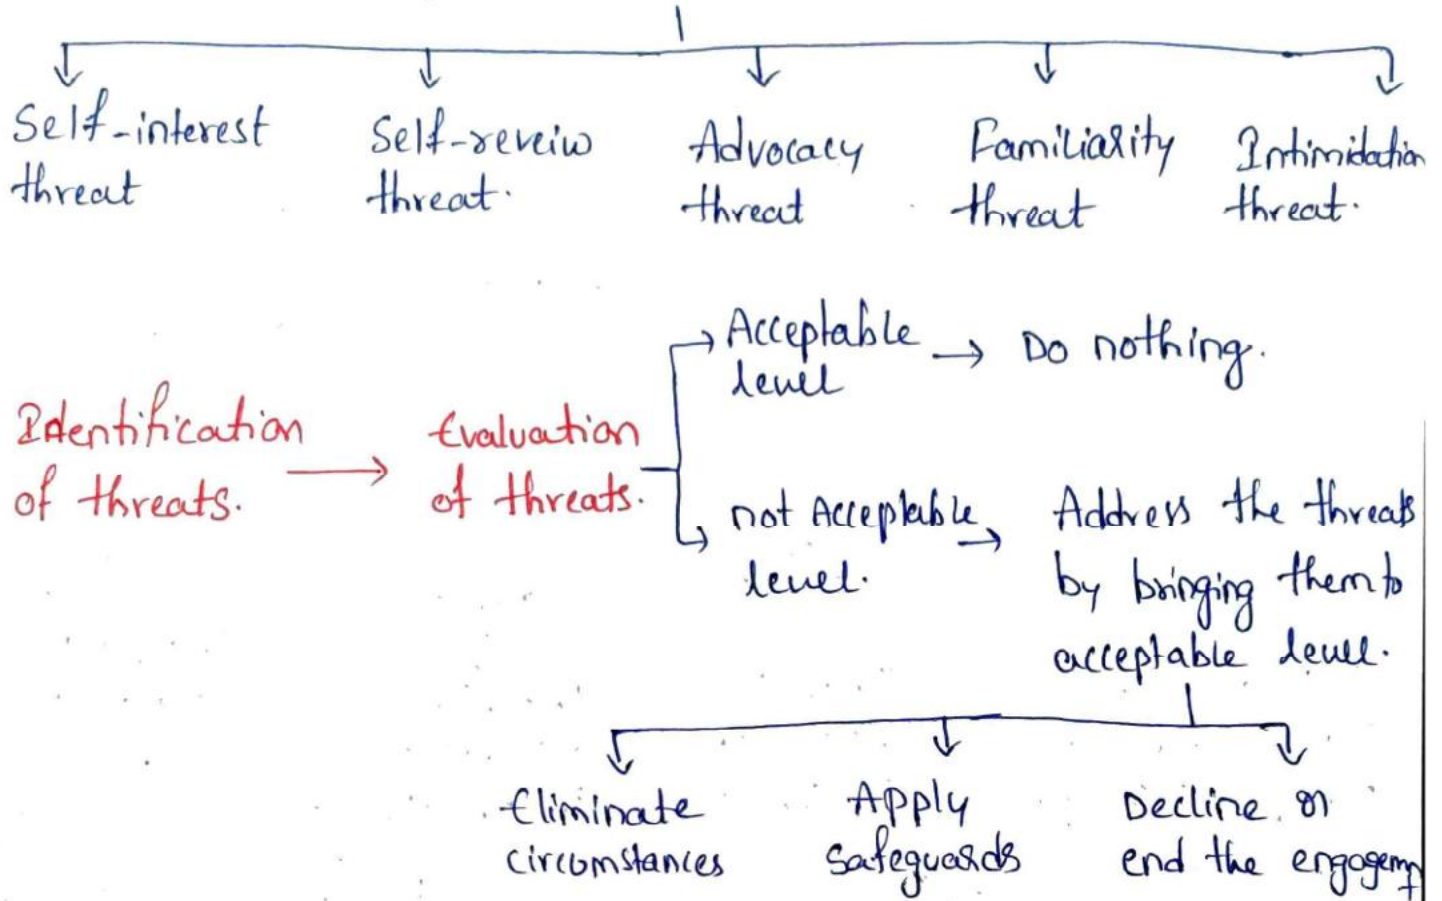 Self-interest threat
Self-reveiw threat.
Advocacy threat
Familiarity threat
Intimidation threat.
Identification of threats.
Evaluation of threats.
Acceptable level
Do nothing.
not Acceptable level.
Address the threats
by bringing them to
acceptable level.
Eliminate circumstances
Apply safeguards
Decline or
end the engagemt